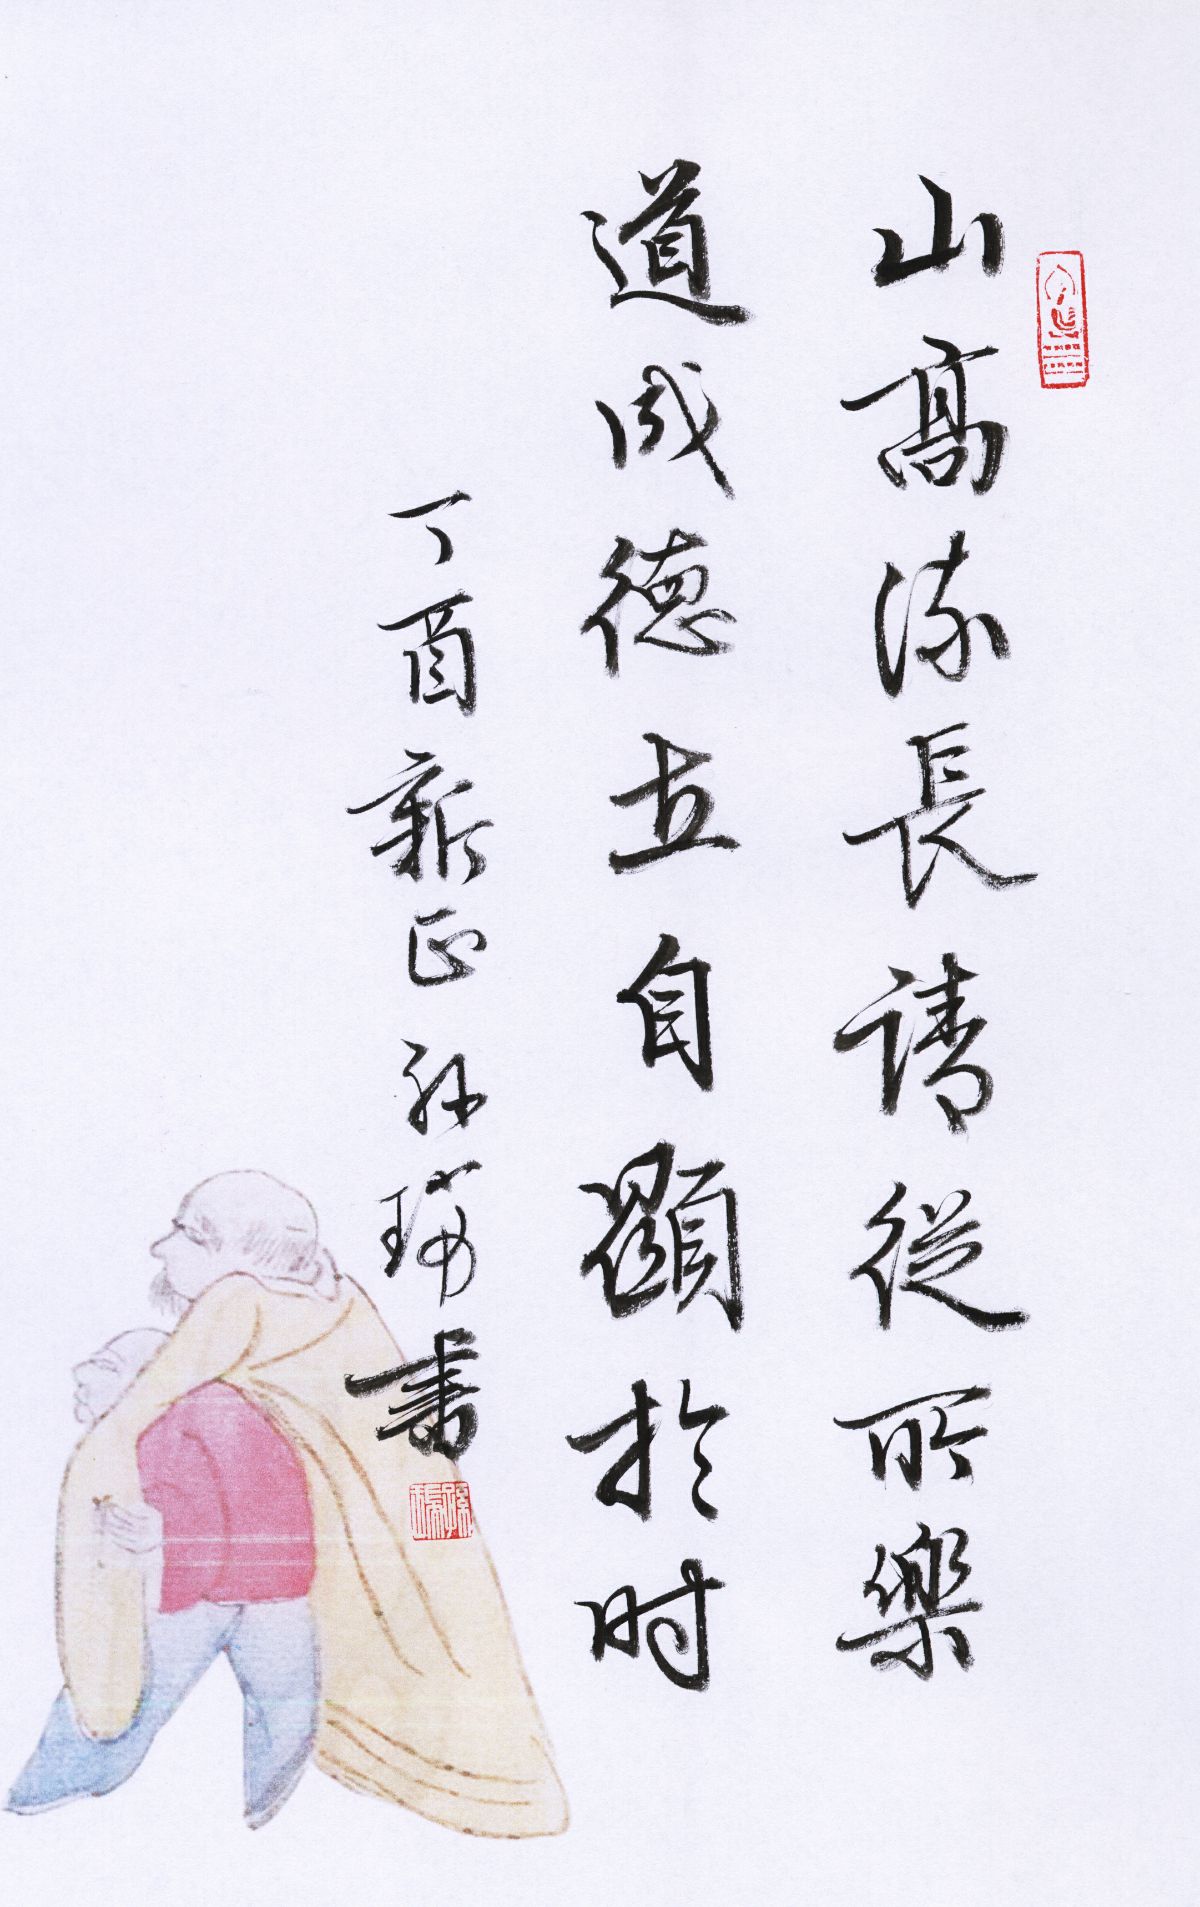 山高流長請從所樂
道成德立自顯於时
丁酉新正孫瑞書